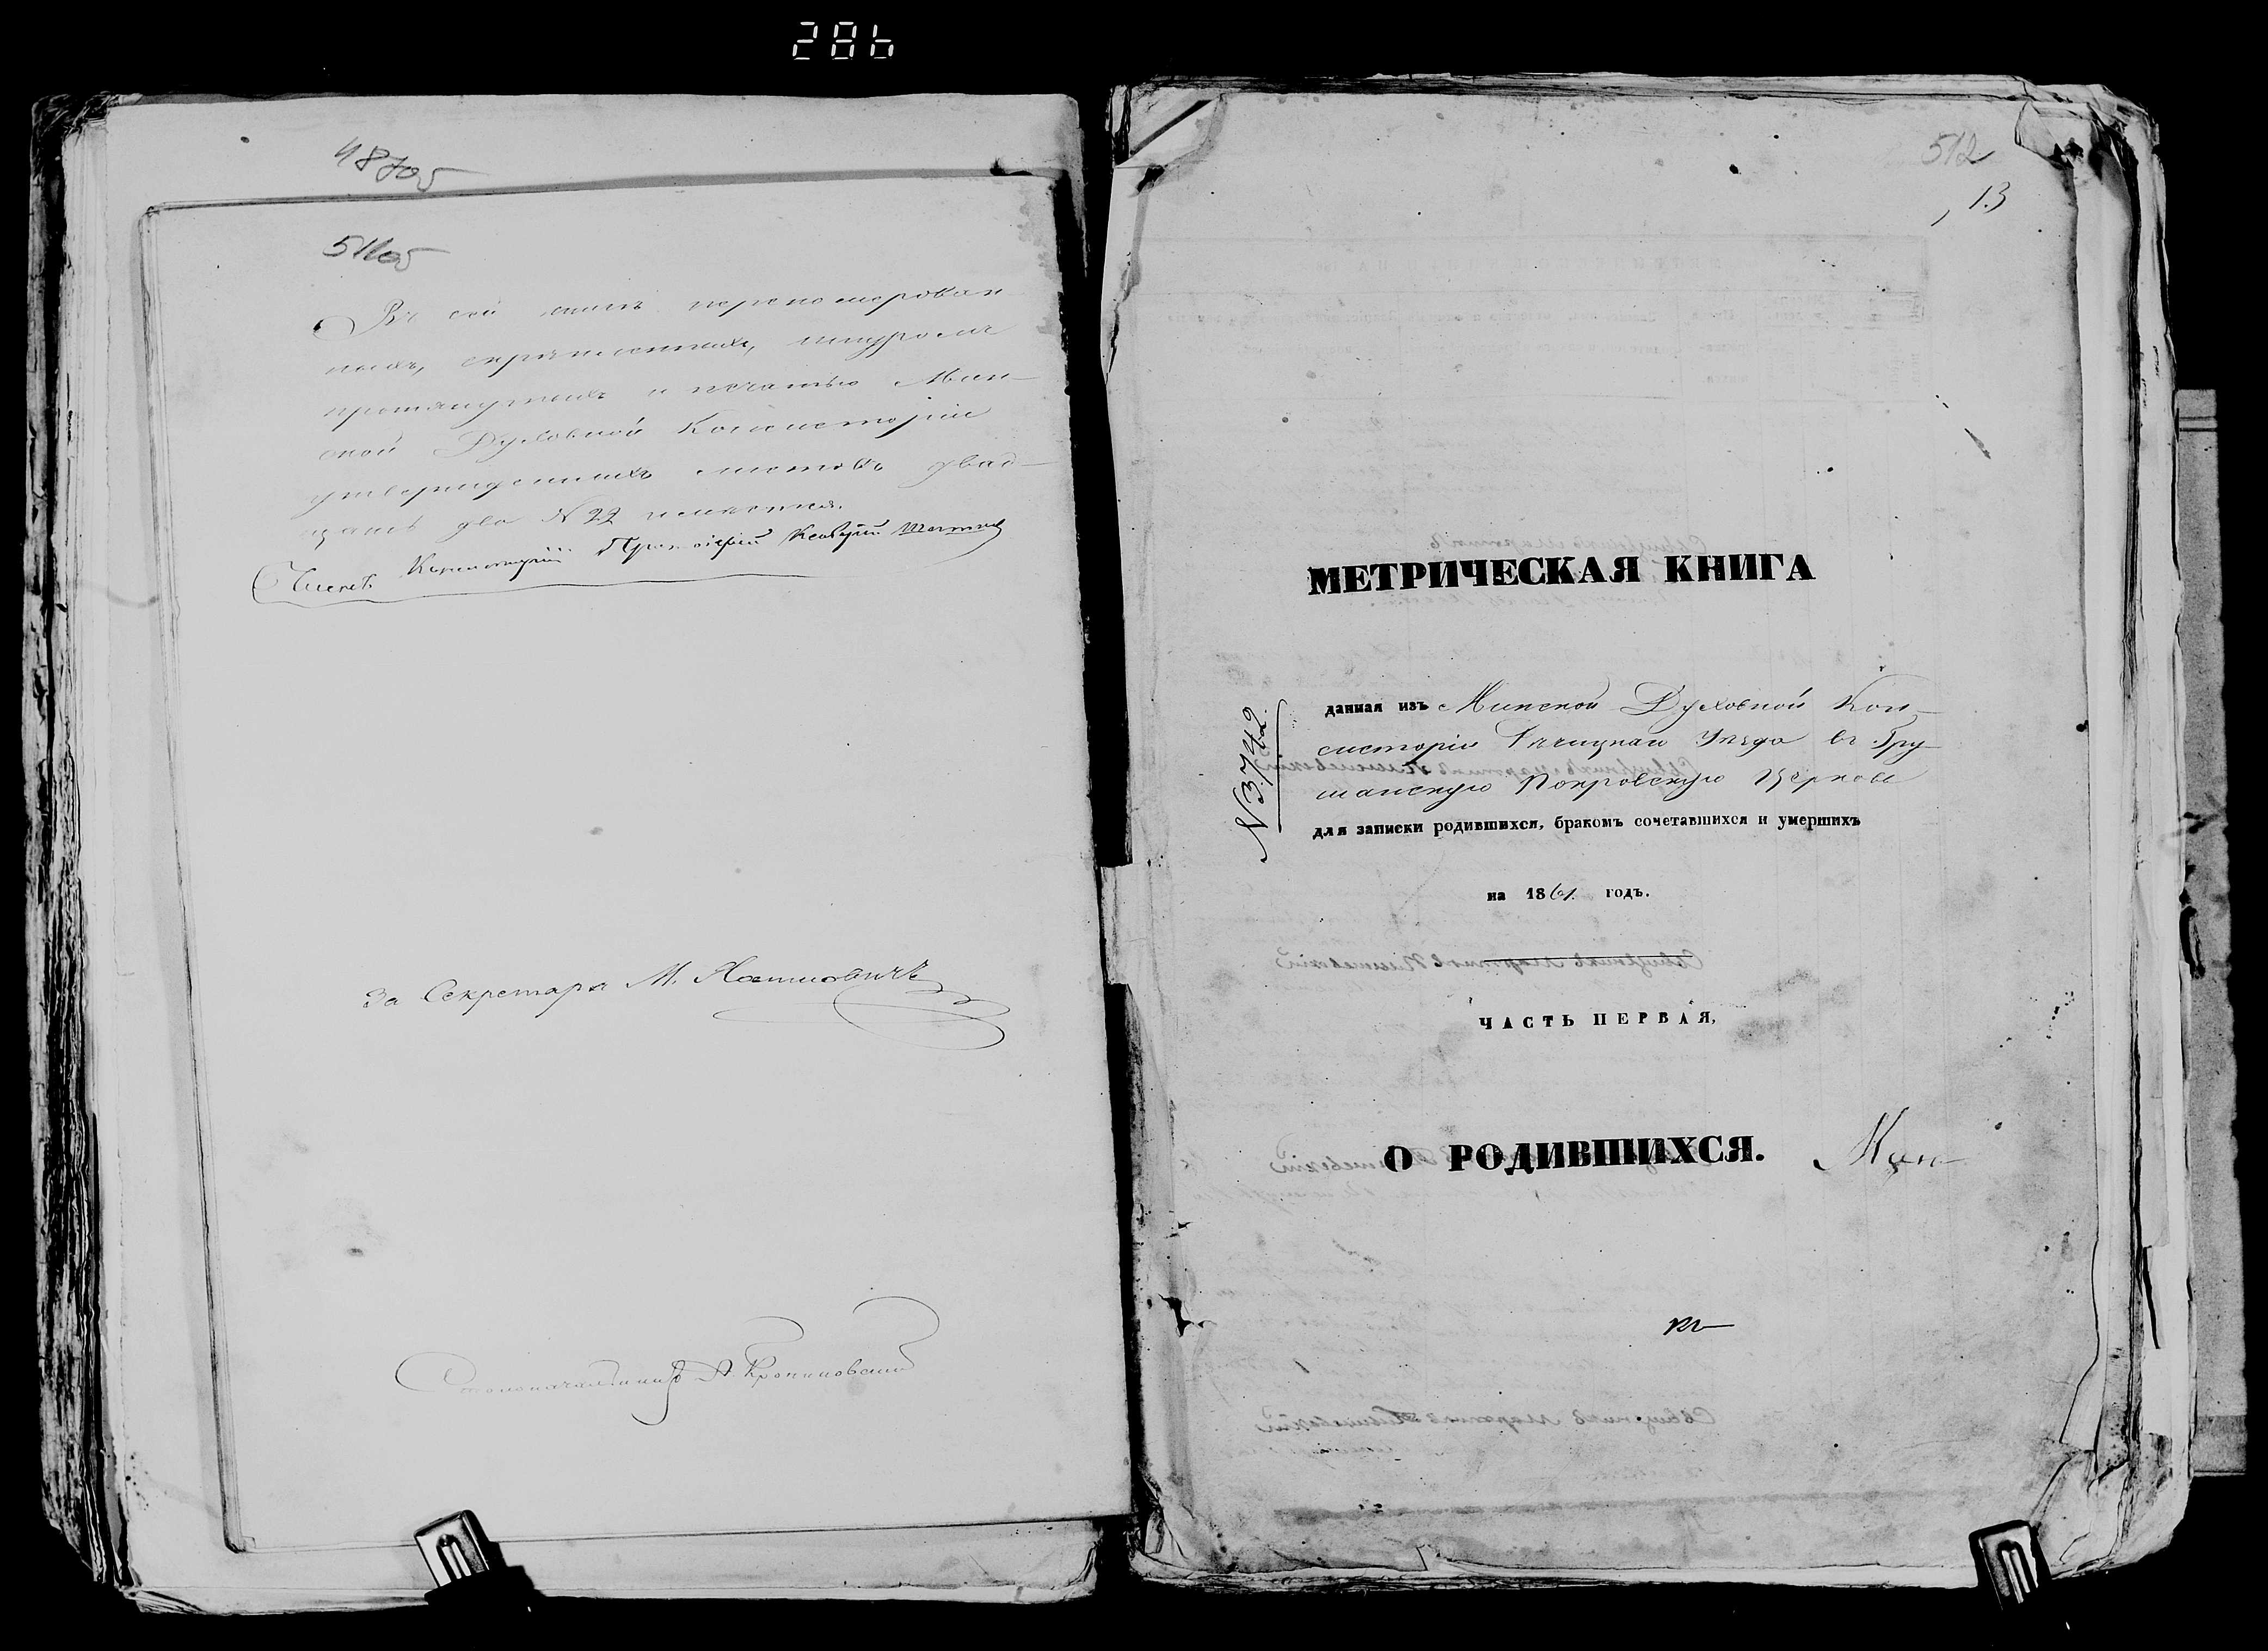 286
48 об
511 об
Въ сей книгѣ перенумерован
ныхъ, скрѣпленныхъ, шнуромъ
протянутыхъ и печатью Мин-
ской Духовной Консисторіи
утвержденныхъ листовъ двад-
цать два № 22 имѣется.
Членъ Консисторіи Протоіерей
За Секретаря М.
Столоначальникъ А.
512
13
МЕТРИЧЕСКАЯ КНИГА
№ 3742.
данная изъ Минской Духовной Кон-
систоріи Рѣчицкаго Уѣзда въ Гру-
шанскую Покровскую Церковь
для записки родившихся, бракомъ сочетавшихся и умершихъ
на 1861. годъ.
ЧАСТЬ ПЕРВАЯ,
О РОДИВШИХСЯ. Мин-